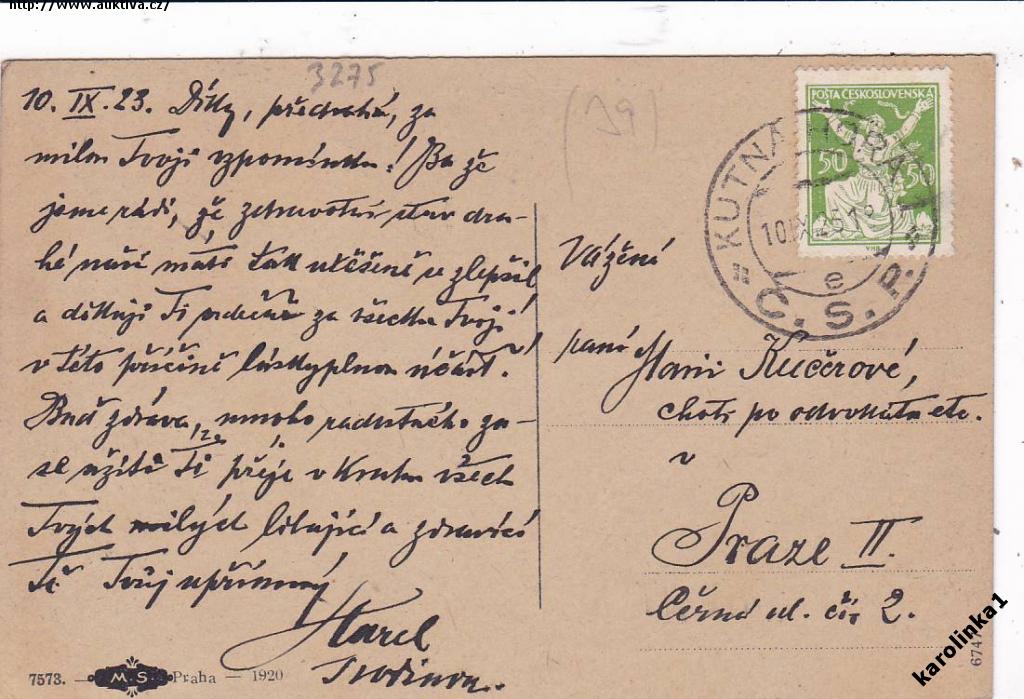 http://www.auktiva.cz/
3275
(39)
10. IX. 23. Díky, předrahá, za
milou Tvoji vzpomínku! Ba že
jsme rádi, že zdravotní stav dra-
hé naší máti tak utěšeně se zlepšil
a děkuji Ti srdečně za všechnu Tvoji
v této příčině láskyplnou účast.
Buď zdráva, mnoho radostného za-
se užití Ti přeje v kruhu všech
Tvých milých líbající a zdravící
Tě Tvůj upřímný
Karel
POŠTA ČESKOSLOVENSKA
50 50
KUTNÁ HORA 1
10.IX.
e
Č.S.P.
Vážená
paní
Kučerové,
choti po advokátu etc.
v
Praze II.
Černá ul. čís 2.
7573. — M.S. Praha — 1920
karolinka1